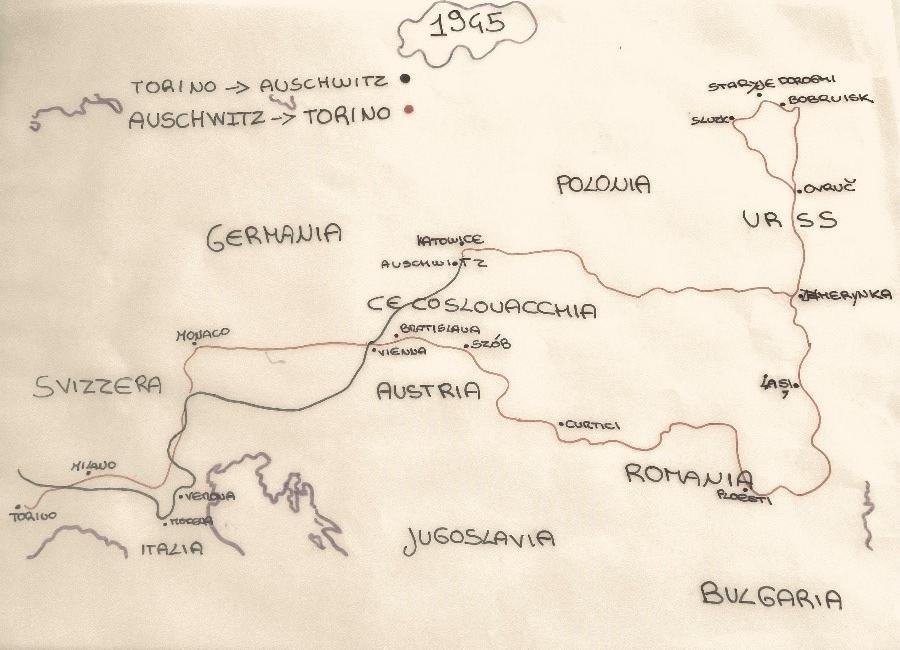 1945
TORINO -> AUSCHWITZ
AUSCHWITZ -> TORINO
STARYJE DOROGHI
BOBRUISK
SLUZK
POLONIA
OVRUČ
URSS
GERMANIA
KATOWICE
AUSCHWITZ
ZMERYNKA
CECOSLOVACCHIA
MONACO
BRATISLAVA
VIENNA
SZÓB
SVIZZERA
AUSTRIA
IASI
CURTICI
MILANO
ROMANIA
PLOESTI
VERONA
TORINO
MODENA
ITALIA
JUGOSLAVIA
BULGARIA